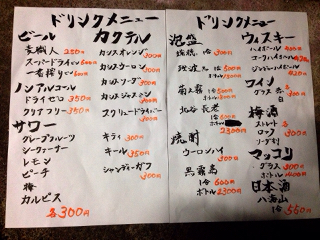 ドリンクメニュー
ビール
麦職人 250円
スーパードライ 500円
一番搾り 500円
ノンアルコール
ドライゼロ 350円
クリアフリー 350円
サワー
グレープフルーツ
シークヮーサー
レモン
ピーチ
梅
カルピス
各300円
カクテル
カシスオレンジ 300円
カシスウーロン 300円
カシスソーダ 300円
カシスジャスミン 300円
スクリュードライバー 300円
キティ 300円
キール 350円
シャンディーガフ 300円
ドリンクメニュー
泡盛
1合 500円
菊之露 1合 500円
北谷長老
2300円
焼酎
ウーロンハイ 300円
黒霧島
1合 600円
ボトル 2300円
ウィスキー
ハイボール 400円
コークハイボール 420円
ジンジャーハイボール 420円
ワイン
グラス 各300円
梅酒
ストレート 各
ロック 300円
ソーダ割
マッコリ
グラス 300円
ボトル 1400円
日本酒
八海山
1合 560円